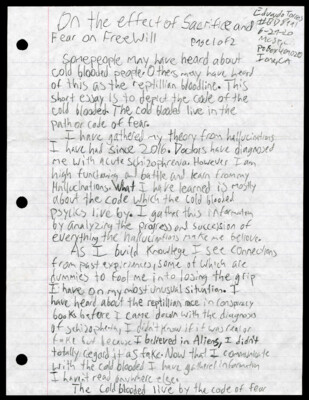 On the effect of Sacrifice and
Fear on Free Will
page 1 of 2
Eduardo
6-24-20
MCSP
Ione, CA
Some people may have heard about
cold blooded people. Others may have heard
of this as the reptillian bloodline. This
short essay is to depict the code of the
cold blooded. The cold blooded live in the
path or code of fear.
I have gathered my theory from hallucinations
I have had since 2016. Doctors have diagnosed
me with acute schizophrenia. However I am
high functioning and battle and learn from my
Hallucinations. What I have learned is mostly
about the code which the cold blooded
psycks live by. I gather this information
by analyzing the progress and succession of
everything the hallucinations make me believe.
As I build knowlege I see connections
from past expiriences, some of which are
dummies to fool me into losing the grip
I have on my most unusual situation. I
have heard about the reptilian race in conspiracy
books before I came down with the diagnosis
of schizophrenia, I didn't know if it was real or
fake but because I believed in Aliens, I didn't
totally regard it as fake. Now that I communicate
with the cold blooded I have gathered information
I haven't read anywhere else.
The cold blooded live by the code of fear